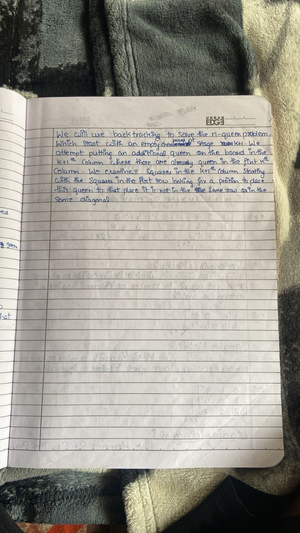 We will use backtracking to solve the n-queen problem
which start with an empty chess board at stage K+1. We
attempt putting an additional queen on the board in the
K+1th Column where there are already queen in the first Kth
Column. We examines squares in the K+1th Column starting
with the square in the first row looking for a position to place
this queen to that place it is not in the same row or in the
same diagonal